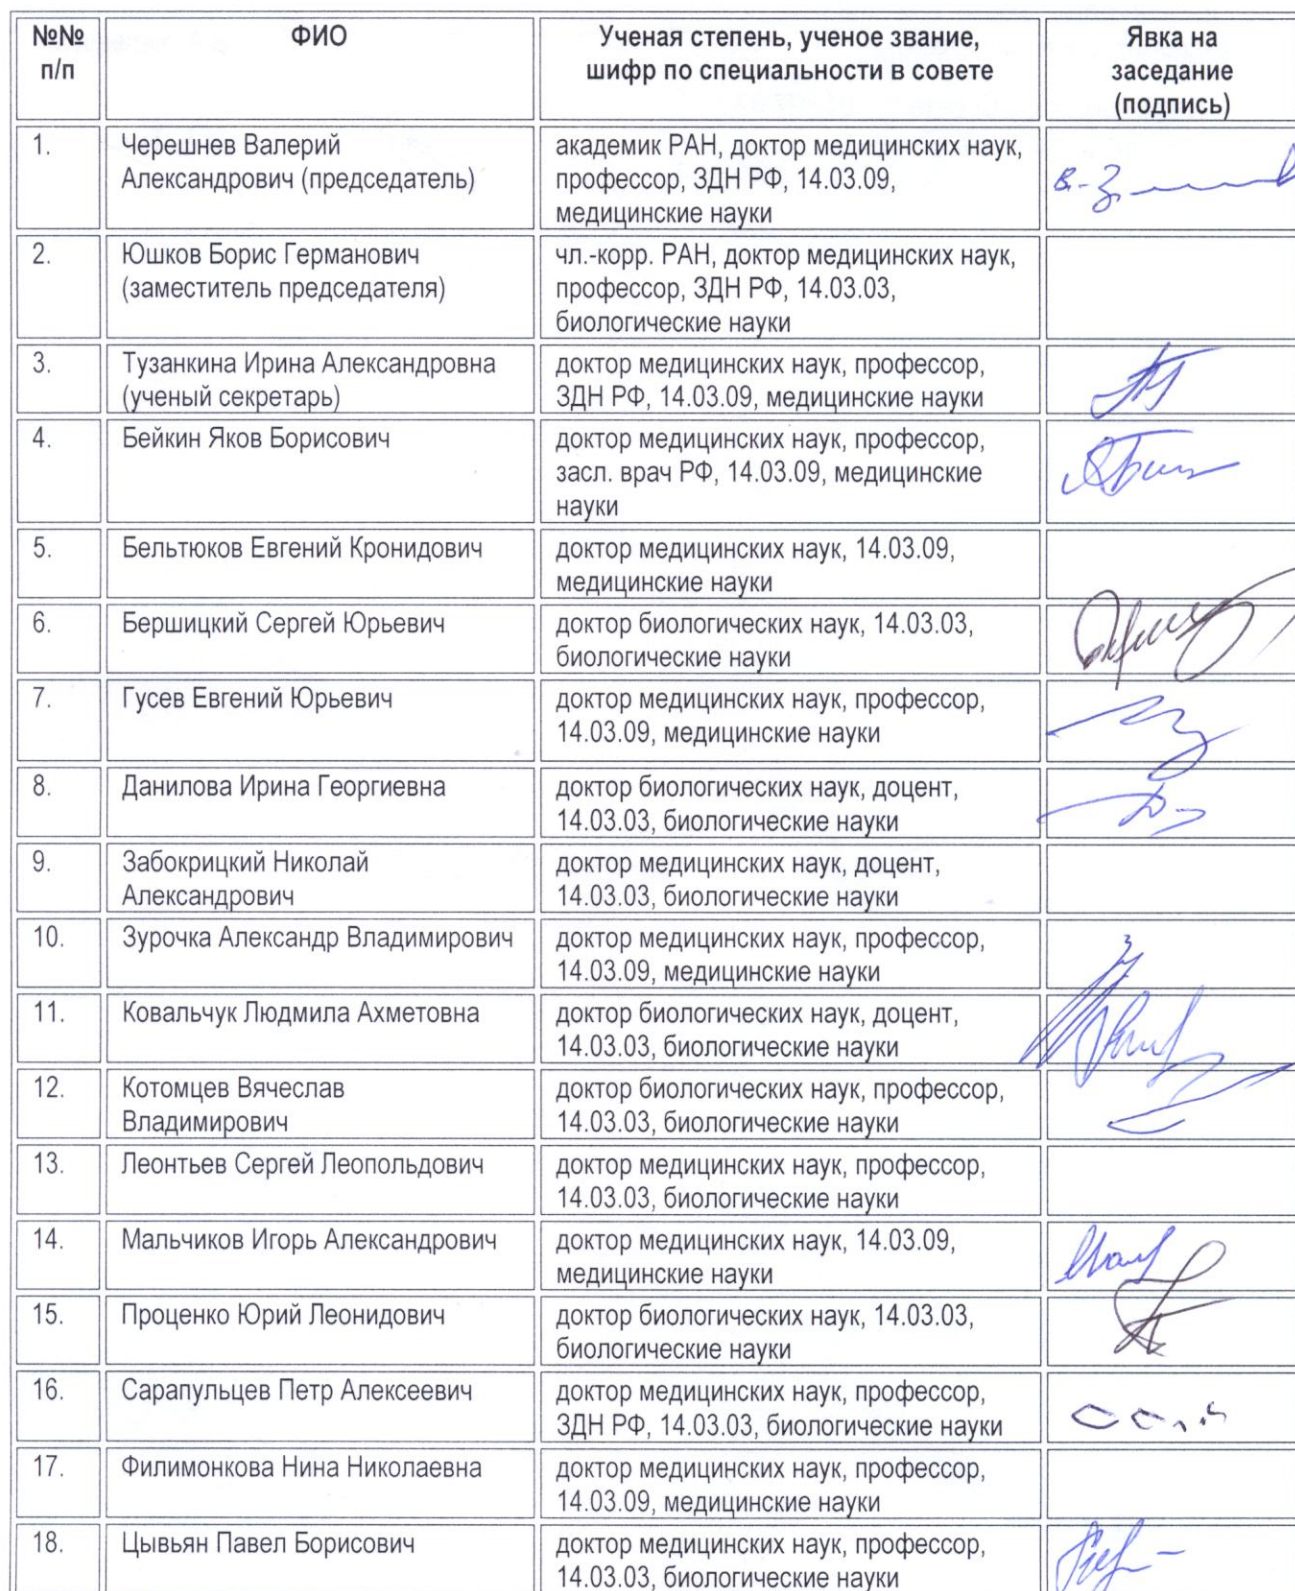 №№ ФИО Ученая степень, ученое звание, Явка на
п/п шифр по специальности в совете заседание
(подпись)
1. Черешнев Валерий академик РАН, доктор медицинских наук,
Александрович (председатель) профессор, ЗДН РФ, 14.03.09,
медицинские науки
2. Юшков Борис Германович чл.-корр. РАН, доктор медицинских наук,
(заместитель председателя) профессор, ЗДН РФ, 14.03.03,
биологические науки
3. Тузанкина Ирина Александровна доктор медицинских наук, профессор,
(ученый секретарь) ЗДН РФ, 14.03.09, медицинские науки
4. Бейкин Яков Борисович доктор медицинских наук, профессор,
засл. врач РФ, 14.03.09, медицинские
науки
5. Бельтюков Евгений Кронидович доктор медицинских наук, 14.03.09,
медицинские науки
6. Бершицкий Сергей Юрьевич доктор биологических наук, 14.03.03,
биологические науки
7. Гусев Евгений Юрьевич доктор медицинских наук, профессор,
14.03.09, медицинские науки
8. Данилова Ирина Георгиевна доктор биологических наук, доцент,
14.03.03, биологические науки
9. Забокрицкий Николай доктор медицинских наук, доцент,
Александрович 14.03.03, биологические науки
10. Зурочка Александр Владимирович доктор медицинских наук, профессор,
14.03.09, медицинские науки
11. Ковальчук Людмила Ахметовна доктор биологических наук, доцент,
14.03.03, биологические науки
12. Котомцев Вячеслав доктор биологических наук, профессор,
Владимирович 14.03.03, биологические науки
13. Леонтьев Сергей Леопольдович доктор медицинских наук, профессор,
14.03.03, биологические науки
14. Мальчиков Игорь Александрович доктор медицинских наук, 14.03.09,
медицинские науки
15. Проценко Юрий Леонидович доктор биологических наук, 14.03.03,
биологические науки
16. Сарапульцев Петр Алексеевич доктор медицинских наук, профессор,
ЗДН РФ, 14.03.03, биологические науки
17. Филимонкова Нина Николаевна доктор медицинских наук, профессор,
14.03.09, медицинские науки
18. Цывьян Павел Борисович доктор медицинских наук, профессор,
14.03.03, биологические науки